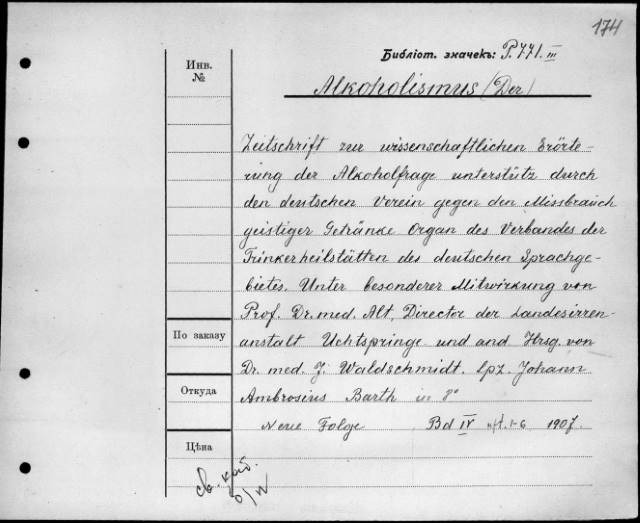 174
Библіот. значекъ: P.771.III
Инв.
№
Alkoholismus (Der)
Zeitschrift zur wissenschaftlichen Erörte-
rung der Alkoholfrage unterstütz durch
den deutschen Verein gegen den Missbrauch
geistiger Getränke Organ des Verbandes der
Trinkerheilstätten des deutschen Sprachge-
bietes. Unter besonderer Mitwirkung von
Prof. Dr. med. Alt, Director der Landesirren-
По заказу
anstalt Uchtspringe und and Hrsg. von
Dr. med. J. Waldschmidt. Lpz. Johann
Откуда
Ambrosius Barth in 8°
Neue Folge Bd IV Hft. 1-6 1907.
Цѣна
св. каб.